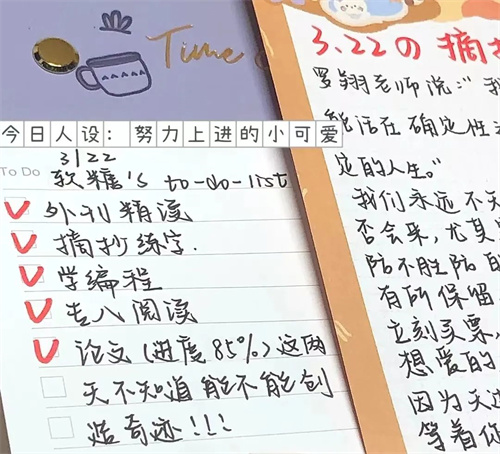 Time
今日人设：努力上进的小可爱
To Do
3/22
软糖's to-do-list
外刊精读
摘抄练字.
学编程
专八阅读
论文(进度85%)这两
天不知道能不能创
造奇迹!!!
3.22の摘抄
罗翔老师说：“我
能活在确定性
定的人生。”
我们永远不知
否会来，尤其
防不胜防的
有所保留
立刻买票，
想爱的
因为天
等着你